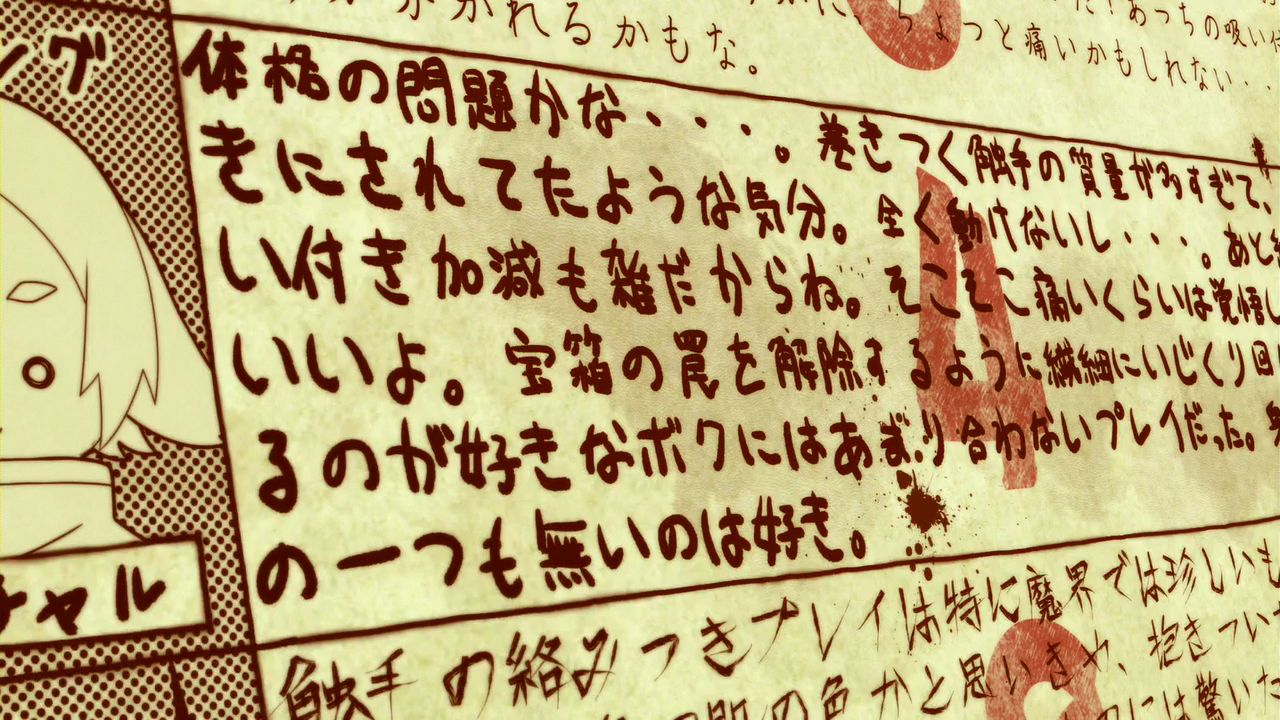 かれるかもな。
ちょっと痛いかもしれない・・
ング
体格の問題かな・・・。巻きつく触手の質量が多すぎて、
きにされてたような気分。全く動けないし・・・。あと
い付き加減も雑だからね。そこそこ痛いくらいは覚悟し
いいよ。宝箱の罠を解除するように繊細にいじくり回
るのが好きなボクにはあまり合わないプレイだった。
の一つも無いのは好き。
4
チャル
触手の絡みつきプレイは特に魔界では珍しいも
の色かと思いきや、抱きつい
には驚いた